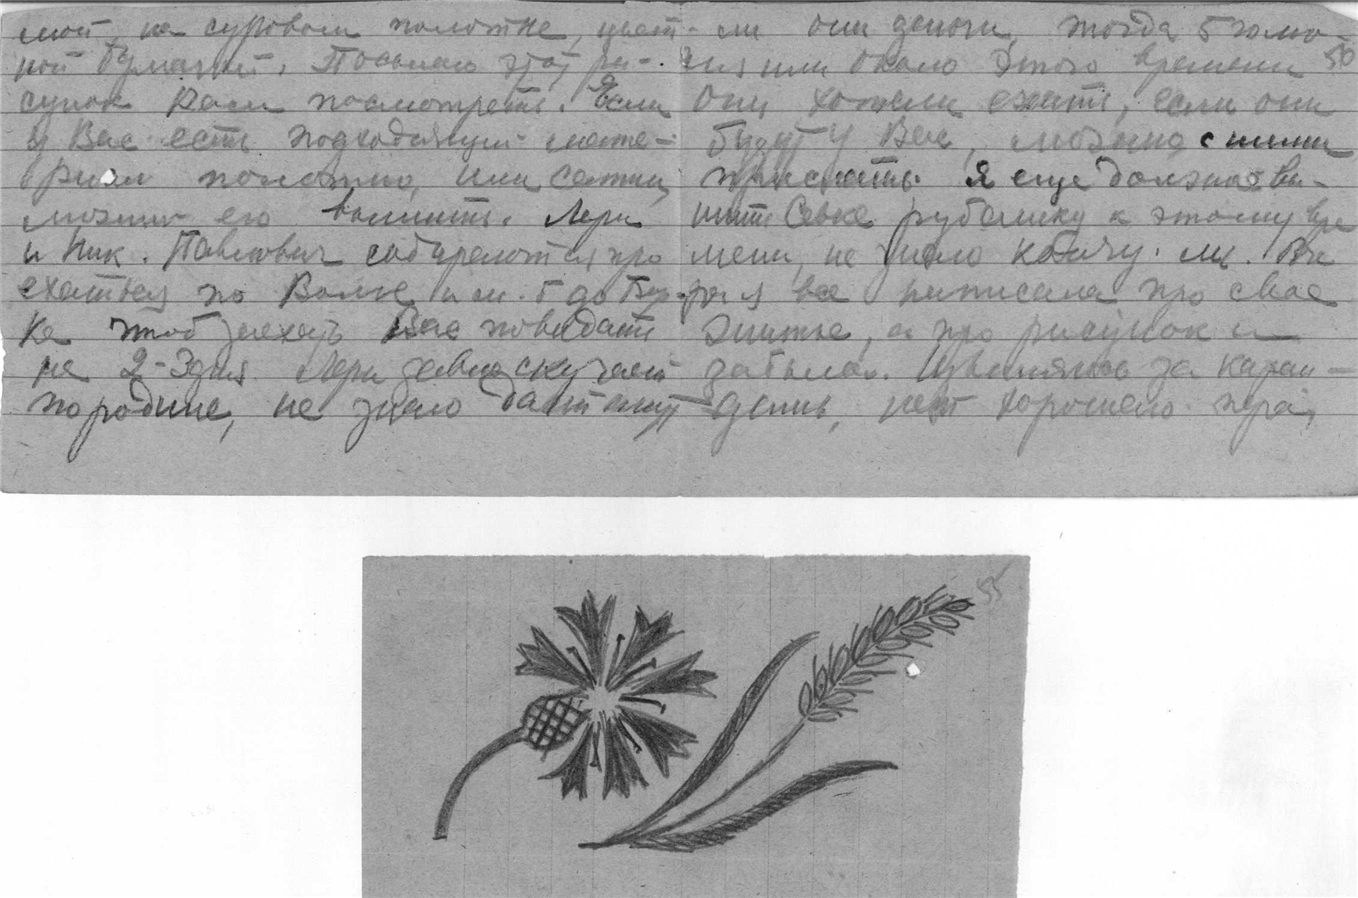 мой, на суровом полотне, цвет-
ной бумагой. Посылаю этот ри-
сунок Вам посмотреть. Если
у Вас есть подходящий мате-
риал полотно, или сатин,
можно его вышить. Лера
и Ник. Павлович собираются про
ехаться по Волге и м. б до
чтоб заехать Вас повидать
на 2-3 дня. Лера давно скучает
по родине, не знаю достанут
ли они деньги, тогда 5
или около этого времени 50
они хотели ехать, если они
будут у Вас, можно с ними
прислать. Я еще должна вы-
шить Севке рубашку к этому вре
мени, не знаю кончу ли. Вче
ра я все написала про свое
житье, а про рисунок и
забыла. Извиняюсь за каран-
даш, нет хорошего пера,
55